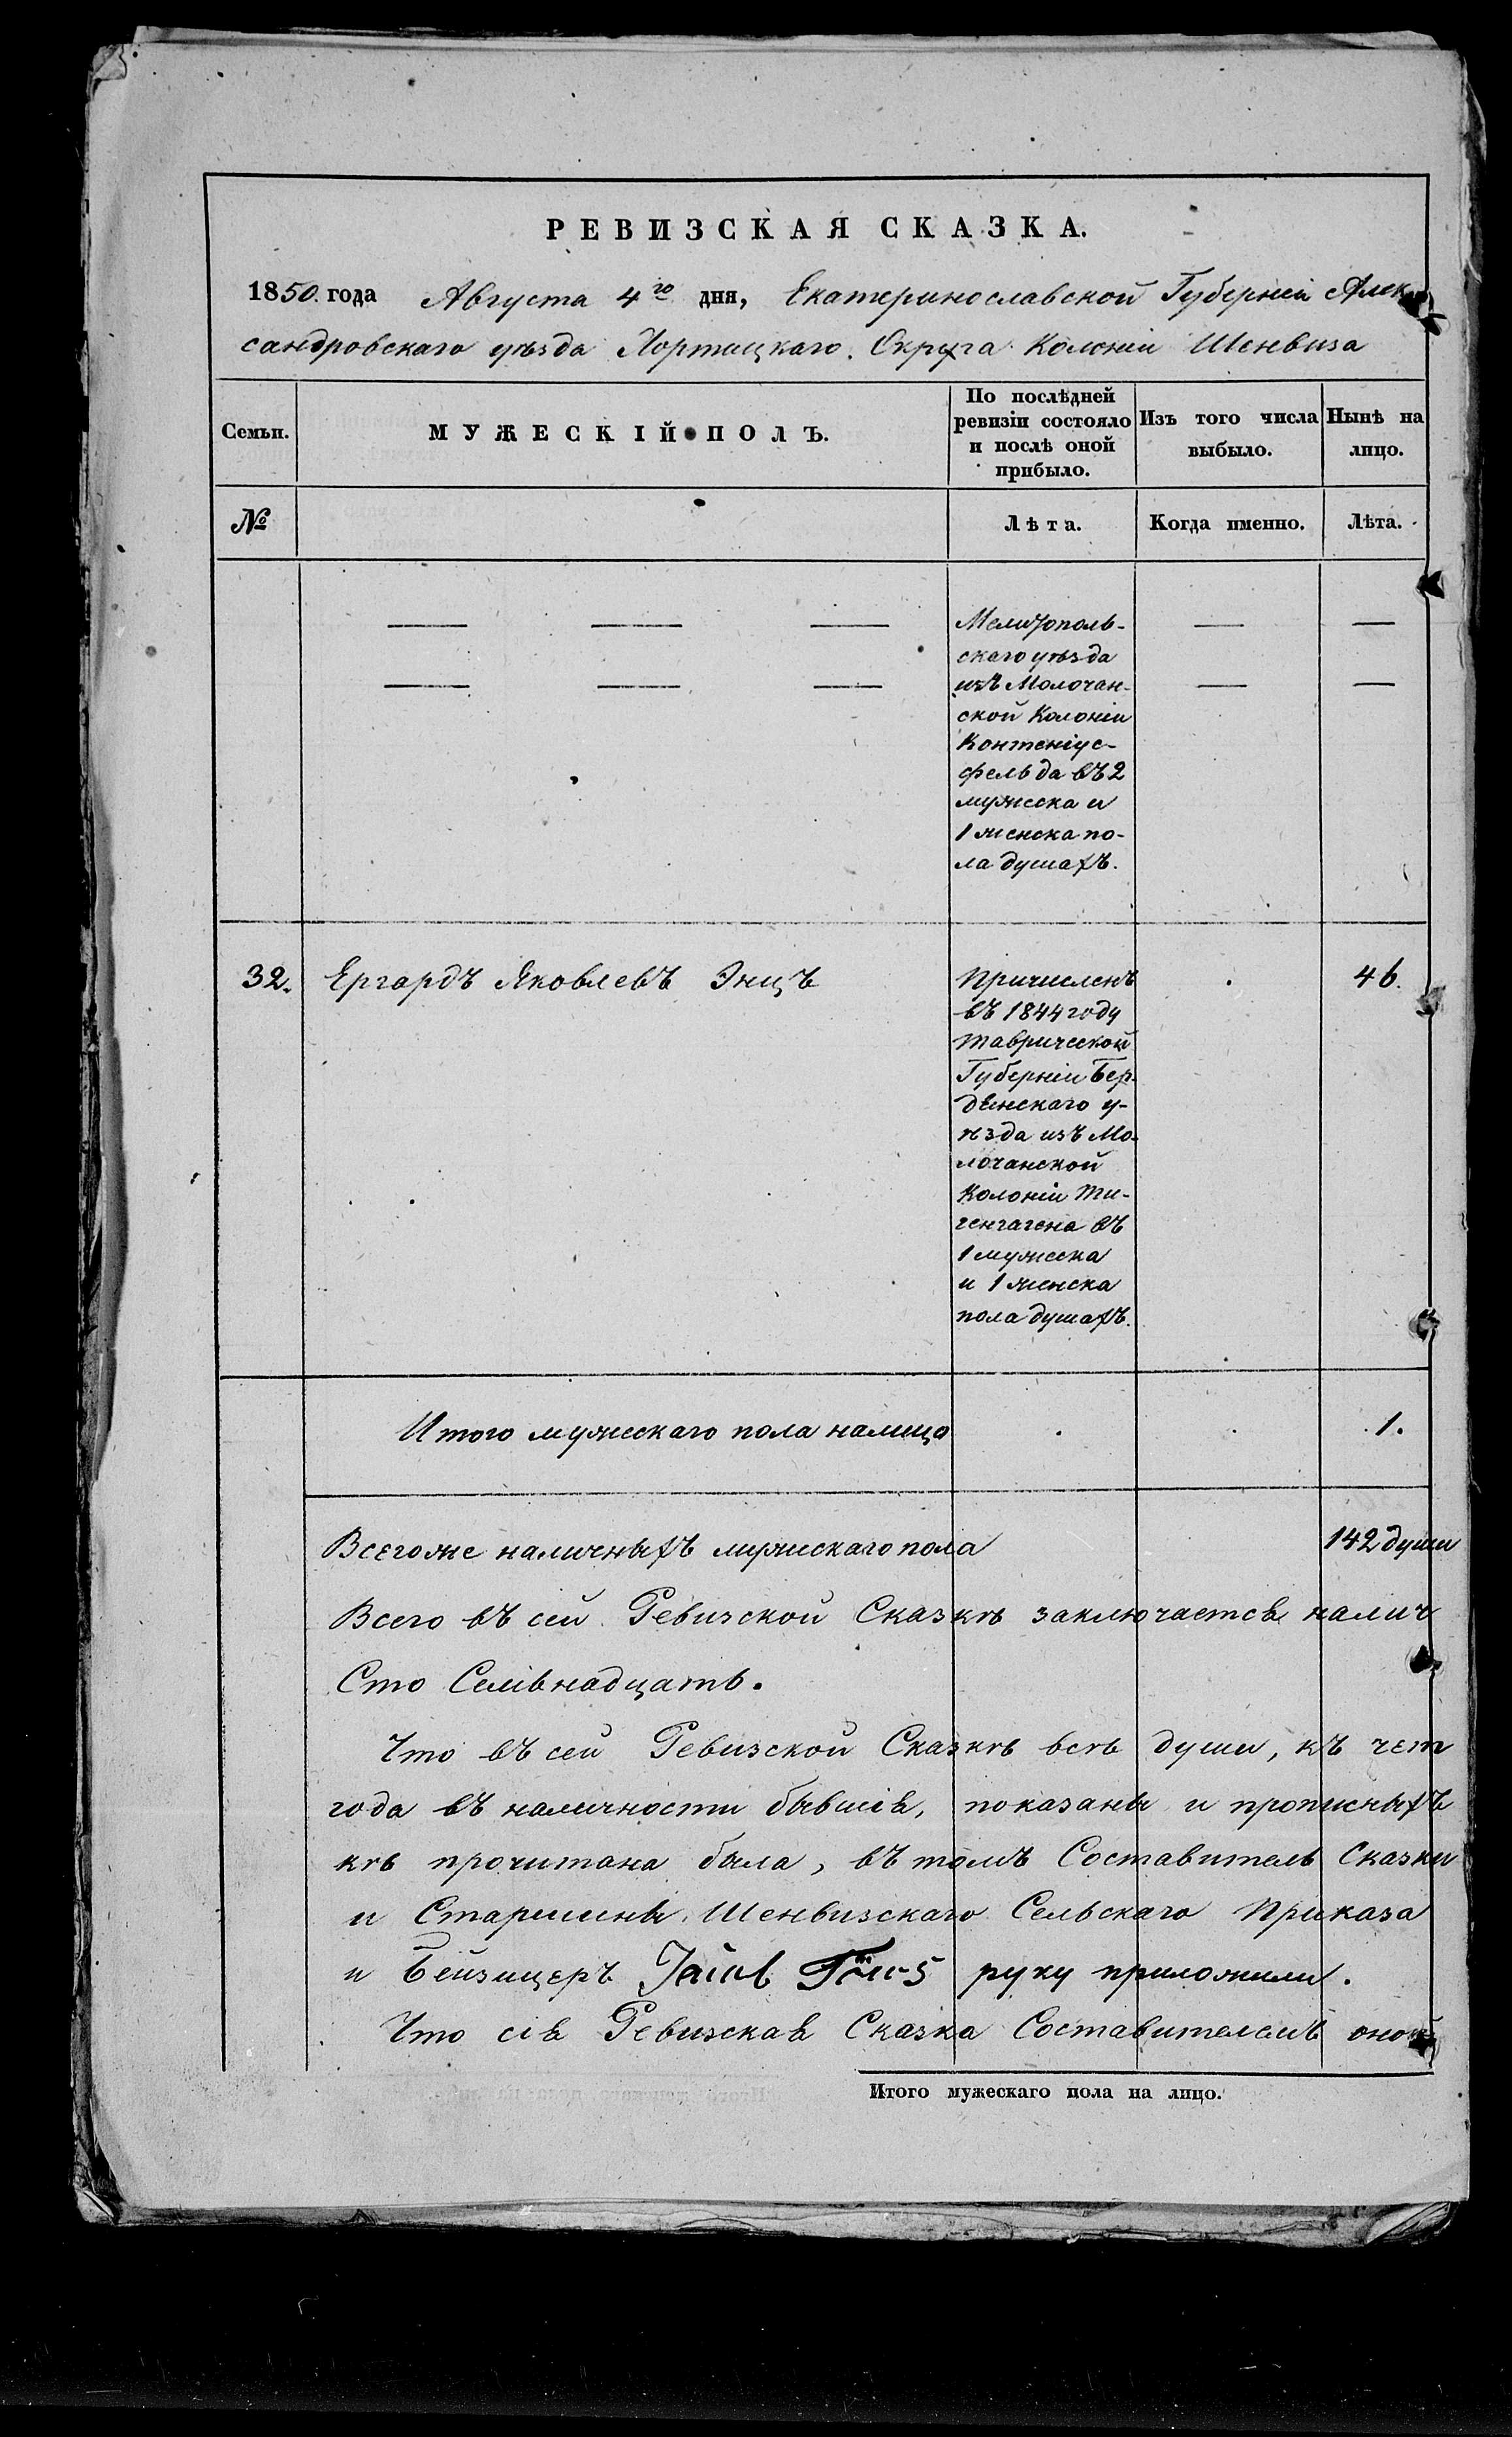 РЕВИЗСКАЯ СКАЗКА.
1850 года Августа 4го дня, Екатеринославской Губерніи Алек
сандровскаго уѣзда Хортицкаго Округа Колоніи Шенвиза
Семьи.
МУЖЕСКІЙ ПОЛЪ.
По послѣдней
ревизіи состояло
и послѣ оной
прибыло.
Изъ того числа
выбыло.
Нынѣ на
лицо.
№
Лѣта.
Когда именно.
Лѣта.
— — — Мелитополь- — —
скаго уѣзда
— — — изъ Молочан- — —
ской Колоніи
Контеніус-
фельда въ 2
мужеска и
1 женска по-
ла душахъ.
32. Ергардъ Яковлевъ Энцъ Причисленъ 46.
въ 1844 году
Таврической
Губерніи Бер-
дянскаго у-
ѣзда изъ Мо-
лочанской
Колоніи Ти-
генгагена въ
1 мужеска
и 1 женска
пола душахъ.
Итого мужескаго пола налицо 1.
Всегоже наличныхъ мужескаго пола 142 души
Всего въ сей Ревизской Сказкѣ заключается налич
Сто Семьнадцать.
Что въ сей Ревизской Сказкѣ всѣ души, къ чет
года въ наличности бывшія, показаны и прописныхъ
кѣ прочитана была, въ томъ Составитель Сказки
и Старшины Шенвизскаго Сельскаго Приказа
и Бейзицеръ руку приложили.
Что сія Ревизская Сказка Составителемъ оной
Итого мужескаго пола на лицо.